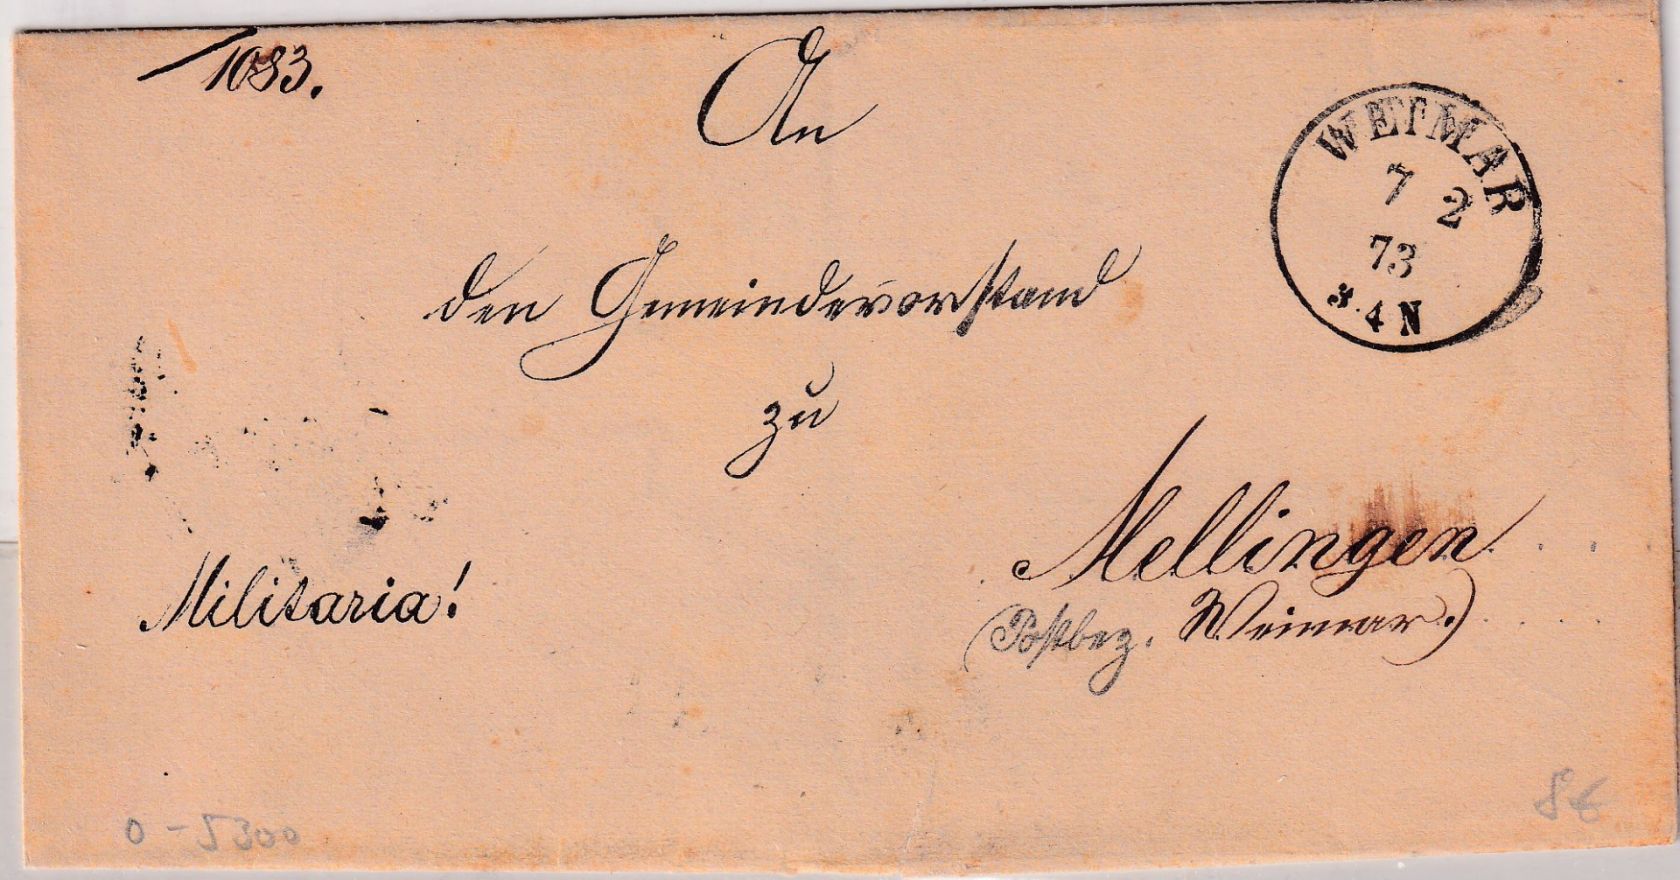 1083.
An
WEIMAR
7 2
73
3.4 N
den Gemeindevorstand
zu
Mellingen
Militaria!
(Postbez. Weimar.)
0-5300
8€